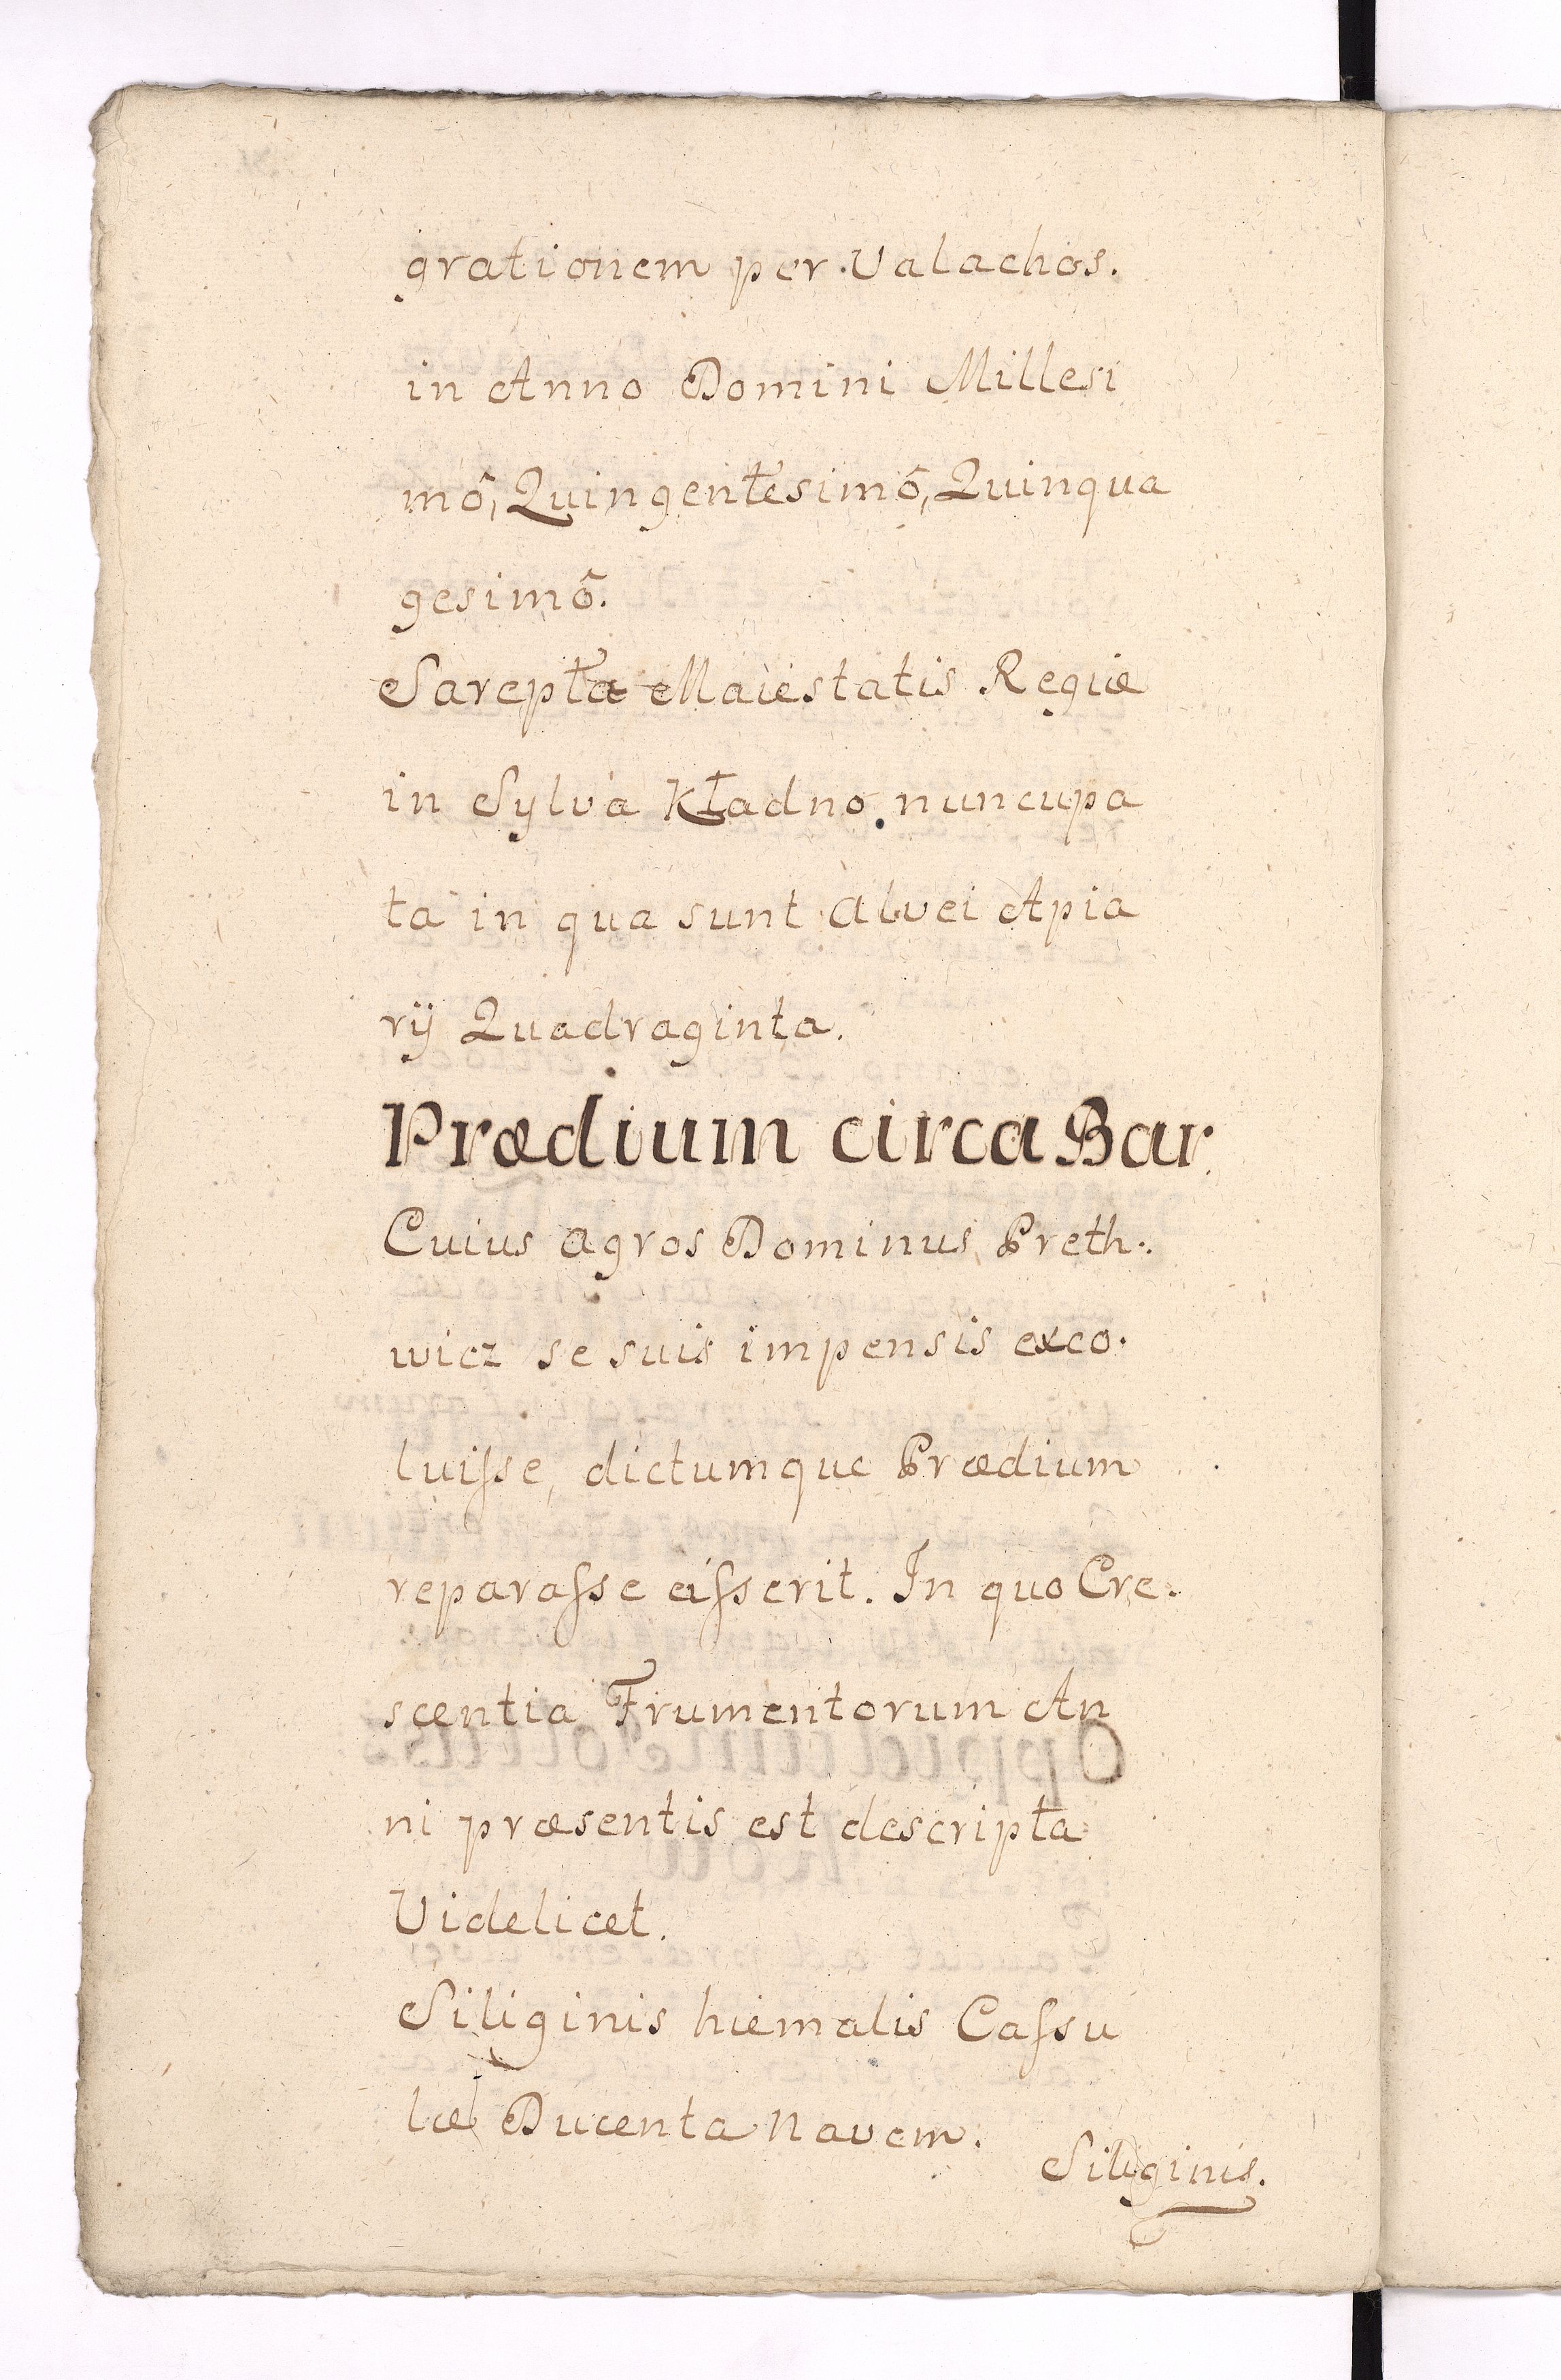 grationem per Ualachos.
in Anno Domini Millesi
mô, Quingentesimô, Quinqua
gesimô.
Sarepta Maiestatis Regiæ
in Sylva Kładno nuncupa
ta in qua sunt alvei Apia
rij Quadraginta.
Prædium circa Bar.
Cuius agros Dominus Preth.
wicz se suis impensis exco.
luiſse, dictumque Prædium
reparaſse aſserit. In quo Cre.
scentia Frumentorum An
ni præsentis est descripta
Videlicet.
Siliginis hiemalis Caſsu
læ Ducenta Navem.
Siliginis.